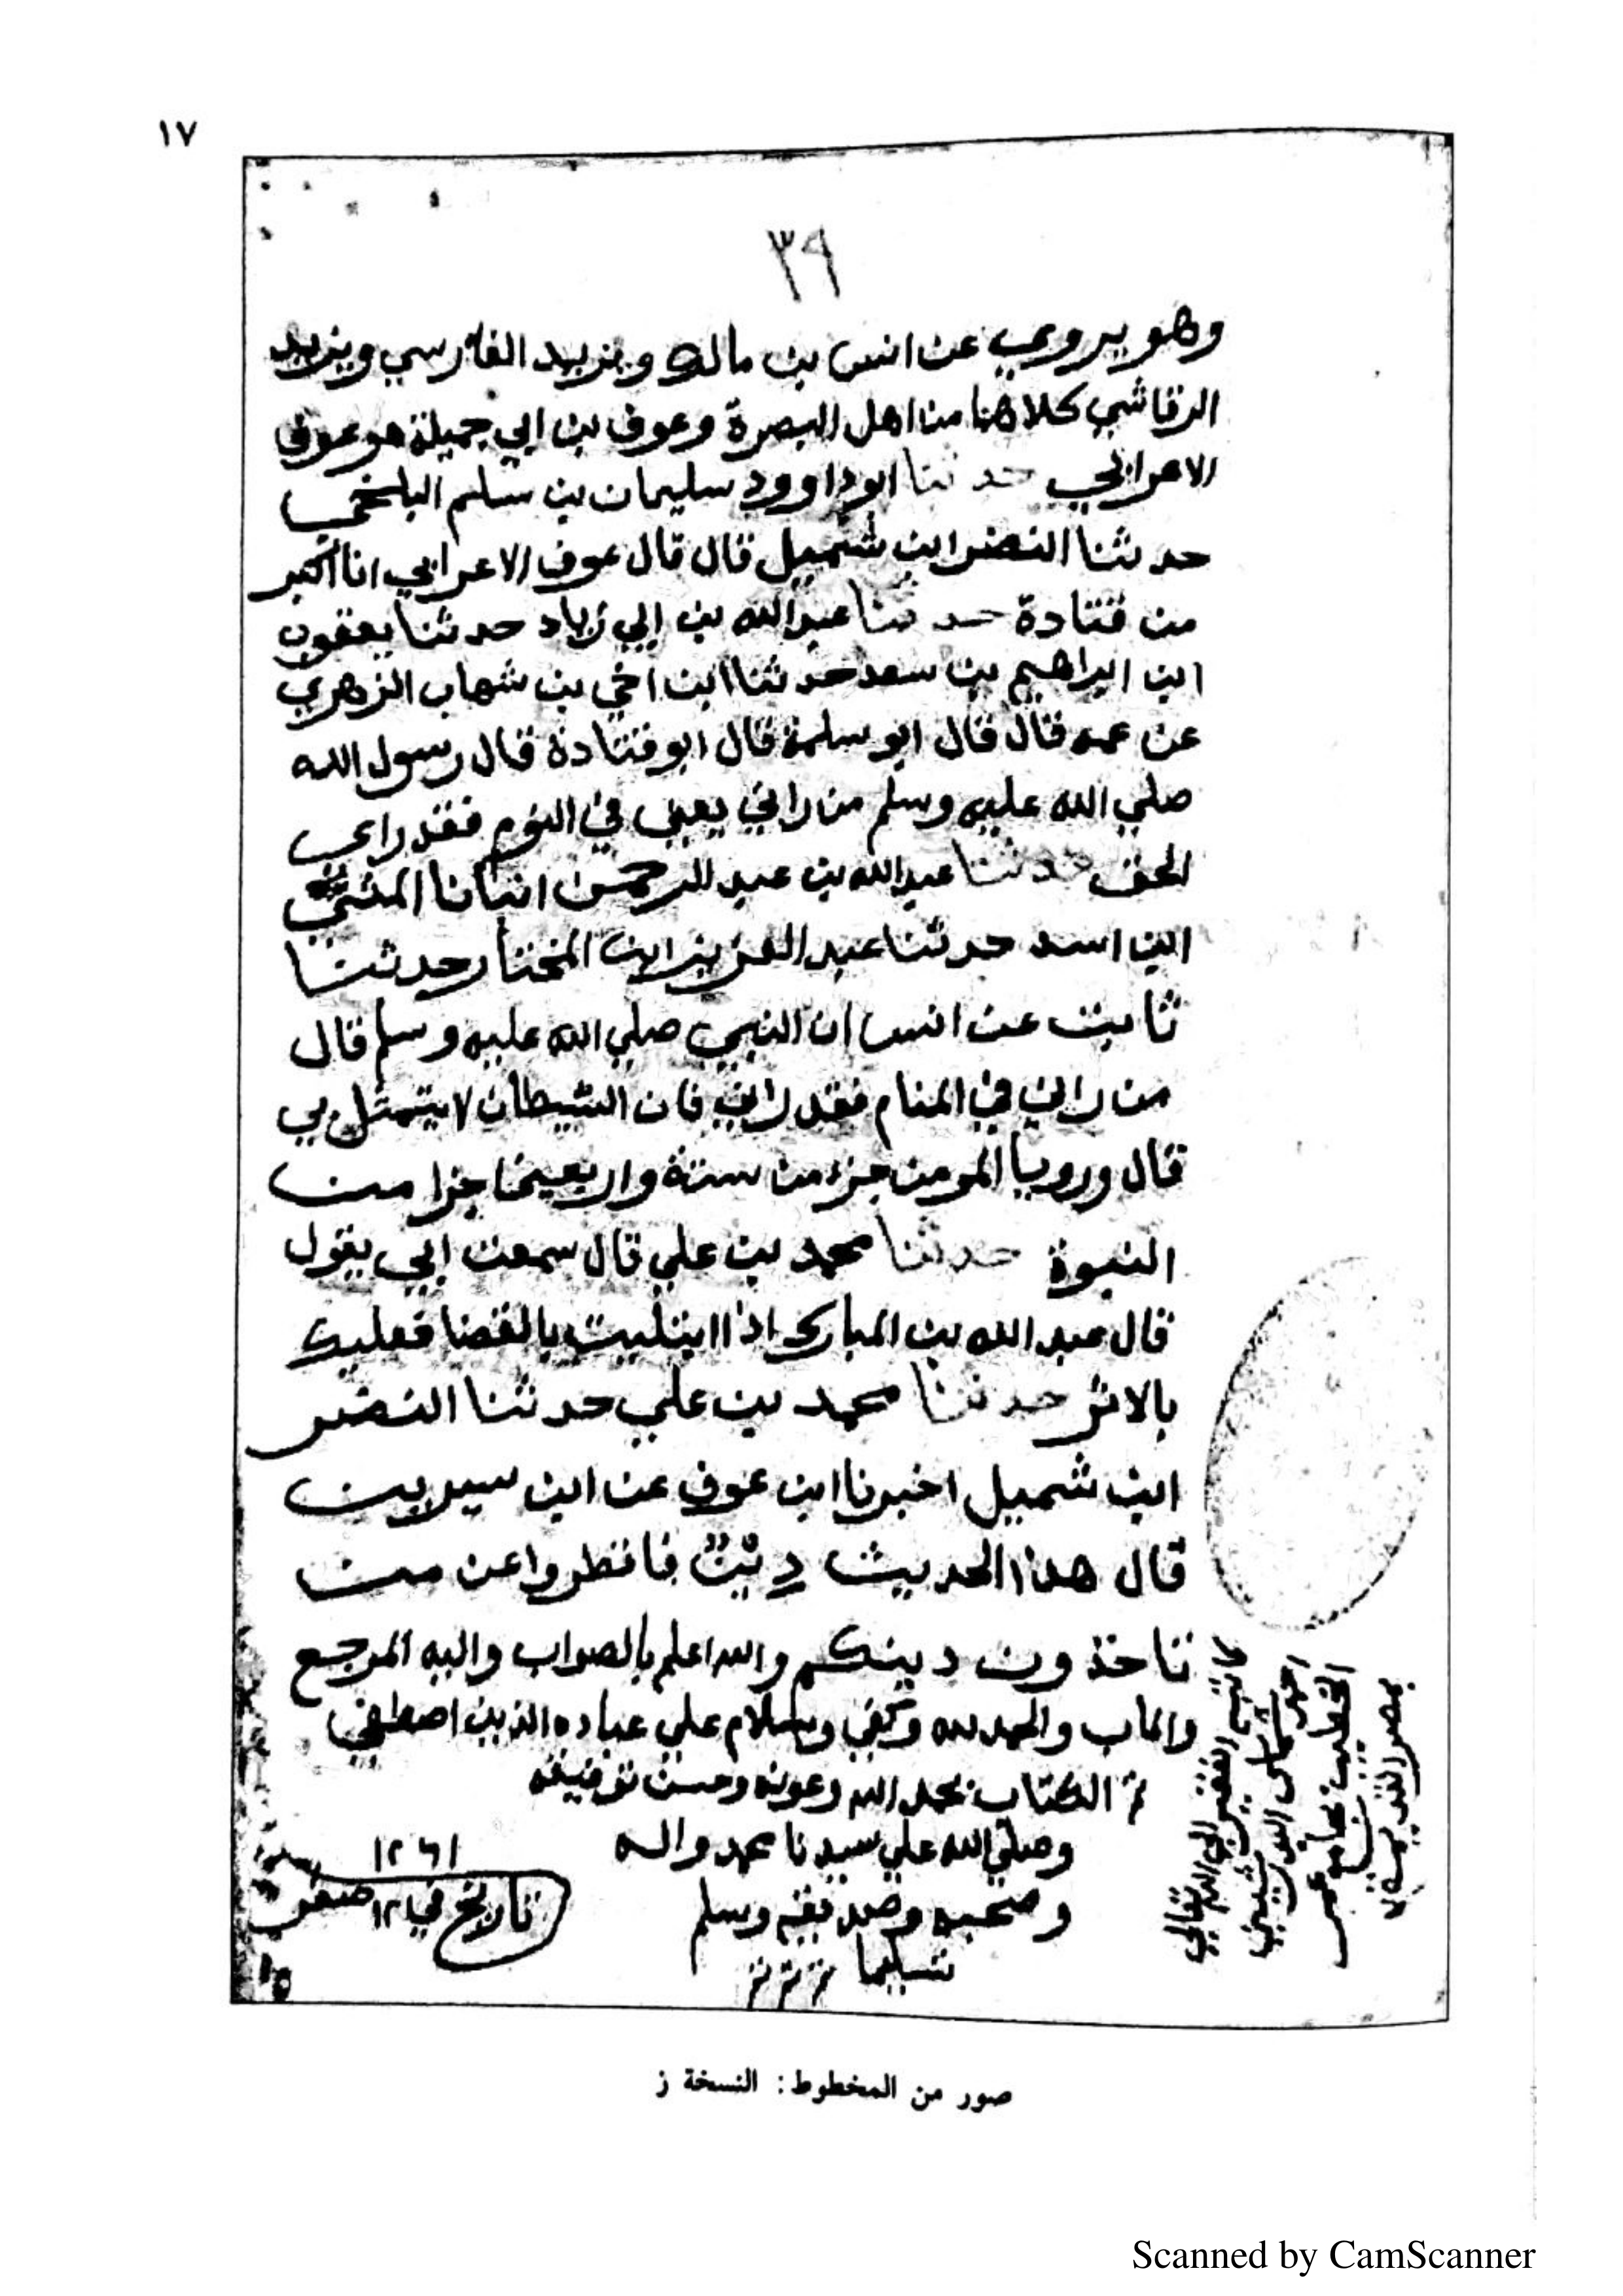 ١٧
٣٩
وهو يروي عن انس بن مالك ويزيد الفارسي ويزيد
الرقاشي كلاهما من اهل البصرة وعوف بن ابي جميلة هو عوف
الاعرابي حدثنا ابوداوود سليمان بن سلم البلخي
حدثنا النضر ابن شميل قال قال عوف الاعرابي انا اكبر
من قتادة حدثنا عبد الله بن ابي زياد حدثنا يعقوب
ابن ابراهيم بن سعد حدثنا ابن اخي بن شهاب الزهري
عن عمه قال قال ابو سلمة قال ابو قتادة قال رسول الله
صلي الله عليه وسلم من راني يعني في النوم فقد راي
الحق حدثنا عبد الله بن عبد الرحمن انبانا المثني
ابن اسد حدثنا عبد العزيز ابن المختار حدثنا
ثابت عن انس ان النبي صلي الله عليه وسلم قال
من راني في المنام فقد راني فان الشيطان لا يتمثل بي
قال ورويا المومن جزء من ستة واربعين جزا من
النبوة حدثنا محمد بن علي قال سمعت ابي يقول
قال عبد الله بن المبارك اذا ابتليت بالقضا فعليك
بالاثر حدثنا محمد بن علي حدثنا النضر
ابن شميل اخبرنا ابن عوف عن ابن سيرين
قال هذا الحديث دِيْنٌ فانظروا عن من
تاخذون دينكم والله اعلم بالصواب واليه المرجع
والماب والحمد لله وكفي وسلام علي عباده الذين اصطفي
تم الكتاب بحمد الله وعونه وحسن توفيقه
وصلي الله علي سيدنا محمد واله
وصحبه وصديقه وسلم
تسليما
م م م
سنة ١٢٦١
تاريخ في ١٢ صفر
كاتبه الفقير الي الله تعالي
احمد
الخطيب بجامع
بمصر القديمة
صور من المخطوط: النسخة ز
Scanned by CamScanner